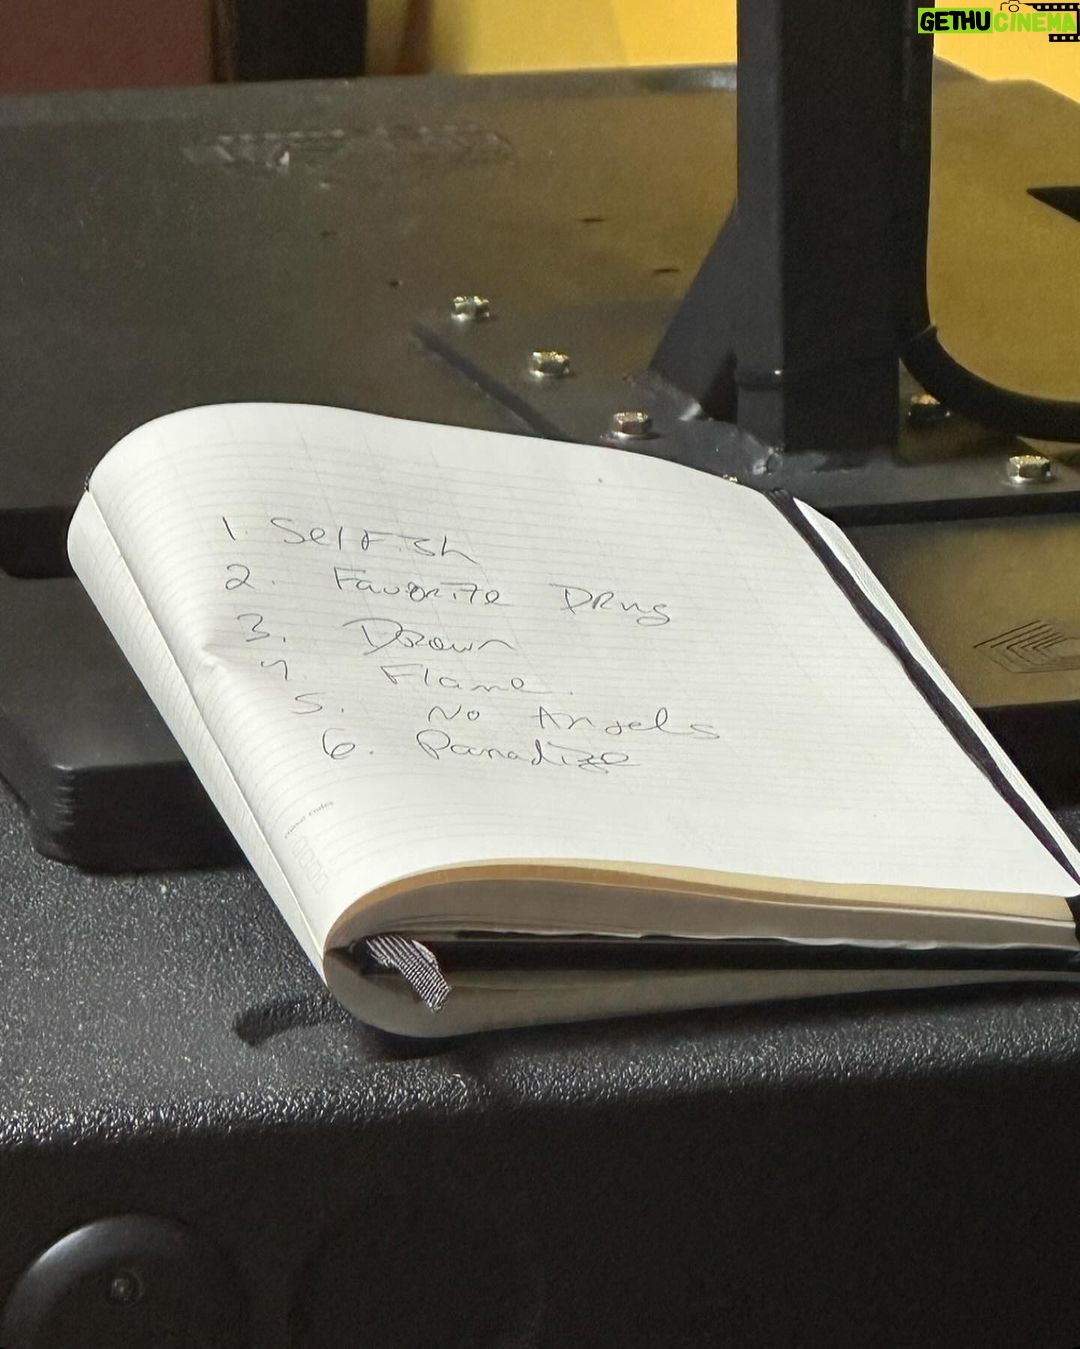 GETHUCINEMA
1. Selfish
2. Favorite Drug
3. Drown
4. Flame.
5. No Angels
6. Paradize